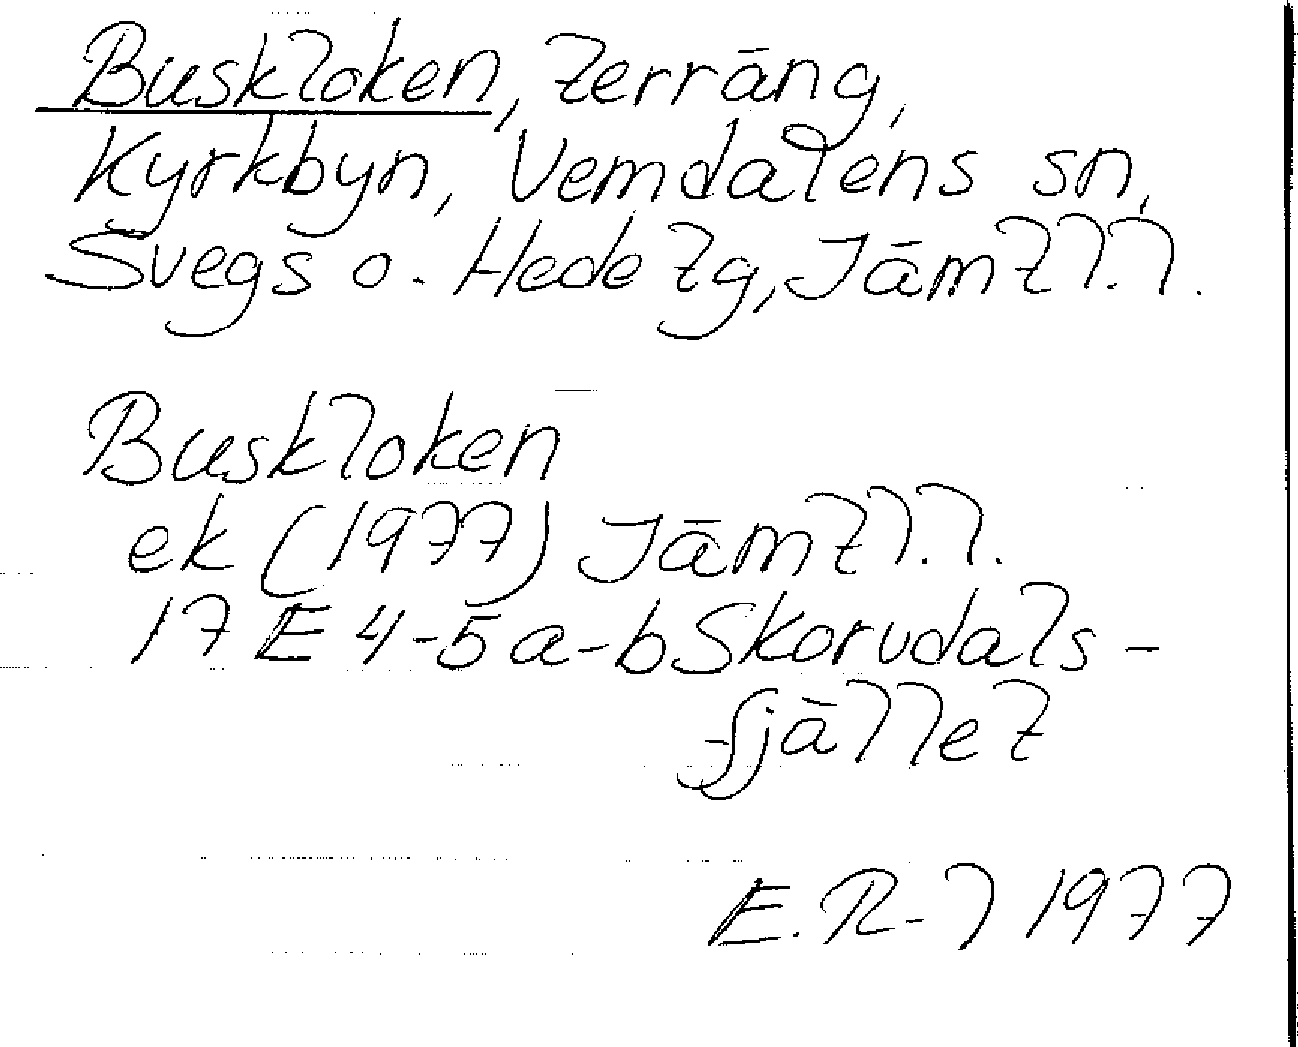 Buskloken, terräng,
Kyrkbyn, Vemdalens sn,
Svegs o. Hede tg, Jämtl. l.
Buskloken
ek (1977) Jämtl. l.
17 E 4-5 a-b Skorvdals-
fjället
E. R-l 1977